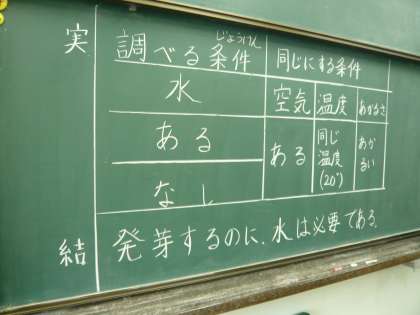 実
じょうけん
調べる条件 同じにする条件
水 空気 温度 あかるさ
ある ある 同じ温度(20°) あかるい
なし
結 発芽するのに、水は必要である。